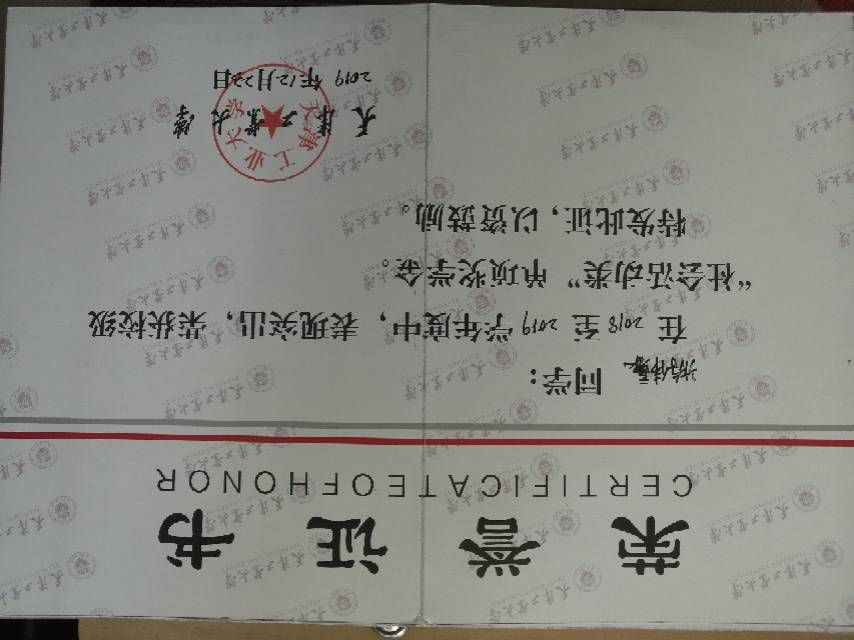 荣誉证书
CERTIFICATEOFHONOR
同学：
在 2018 至 2019 学年度中，表现突出，荣获校级
“社会活动类”单项奖学金。
特发此证，以资鼓励。
天津工业大学
2019 年 12 月 22 日
天津工业大学